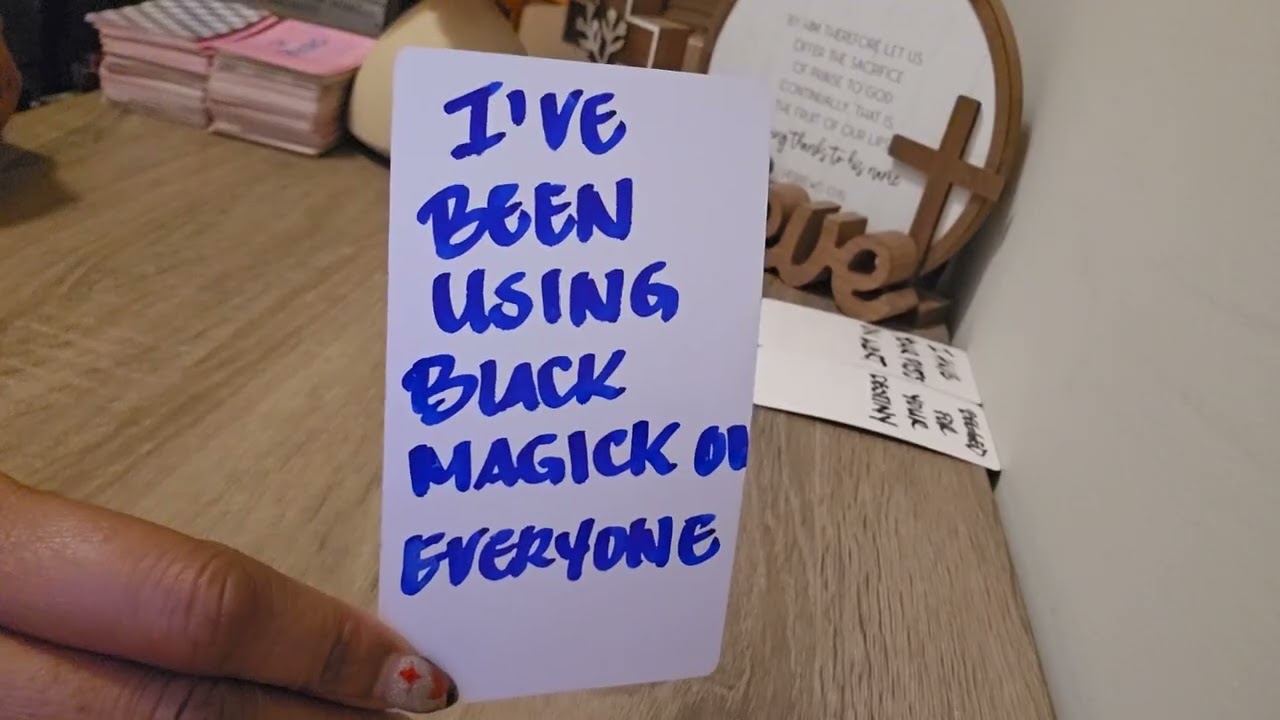 I'VE
BEEN
USING
BLACK
MAGICK ON
EVERYONE
BY HIM THEREFORE LET US
OFFER THE SACRIFICE
OF PRAISE TO GOD
CONTINUALLY, THAT IS,
THE FRUIT OF OUR LIPS
thanks to his name